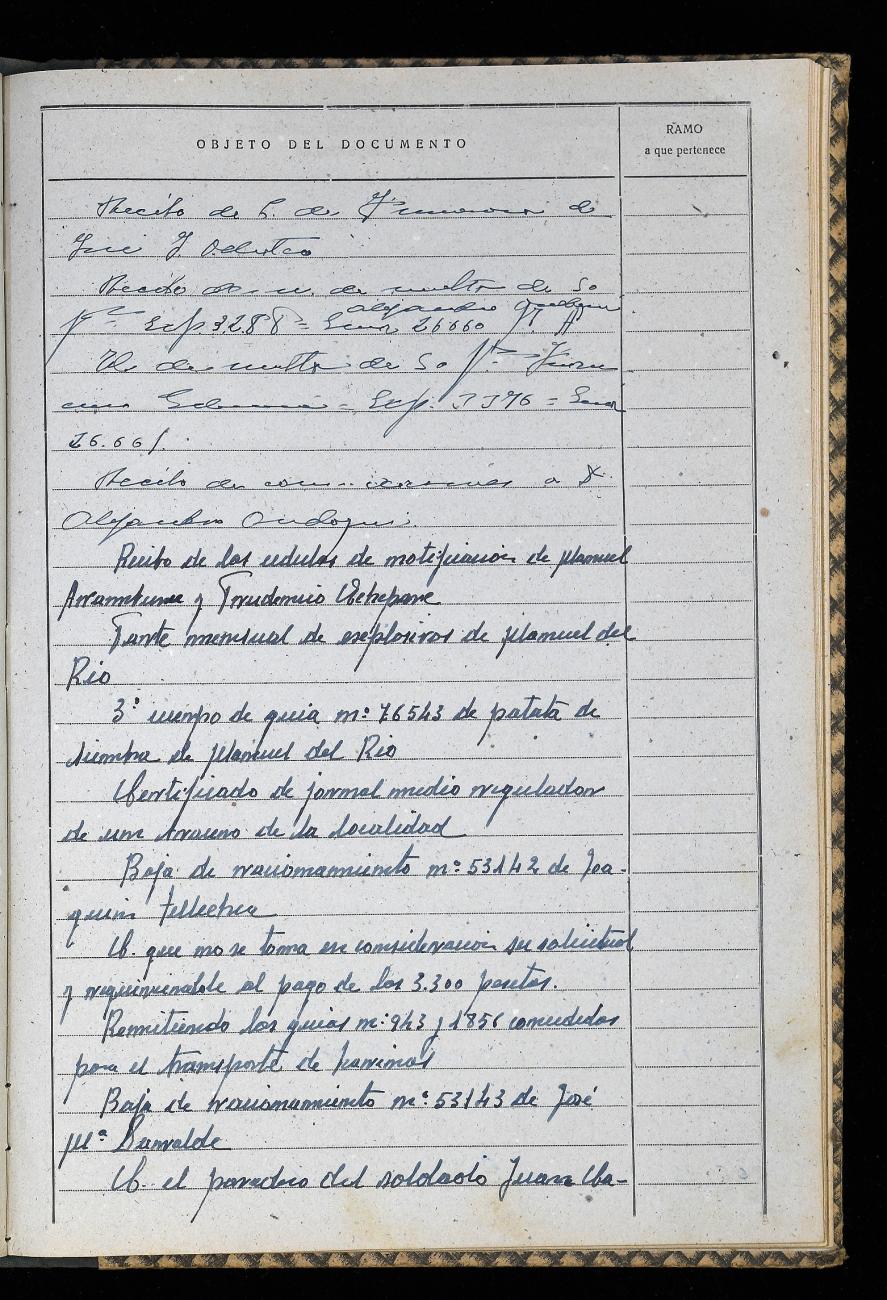 OBJETO DEL DOCUMENTO
RAMO
a que pertenece
Recibo de de
José J.
Recibo de multa de 50
Alejandro
Exp. 3288 = 26660
Id de multa de 50
= Exp. = 
26.661.
Recibo de a D.
Alejandro
Recibo de las cedulas de notificacion de Manuel
y Prudencio Echepare
Parte mensual de explosivos de Manuel del
Rio
3º cuerpo de guia nº 76543 de patata de
siembra de Manuel del Rio
Certificado de jornal medio regulador
de un bracero de la localidad
Baja de racionamiento nº 53142 de Joa-
quin Tellechea
C. que no se toma en consideracion su solicitud
y requiriendole al pago de las 3.300 pesetas.
Remitiendo las guias nº 943 y 1856 concedidas
para el transporte de harinas
Baja de racionamiento nº 53143 de José
Mª
C. el paradero del soldado Juan